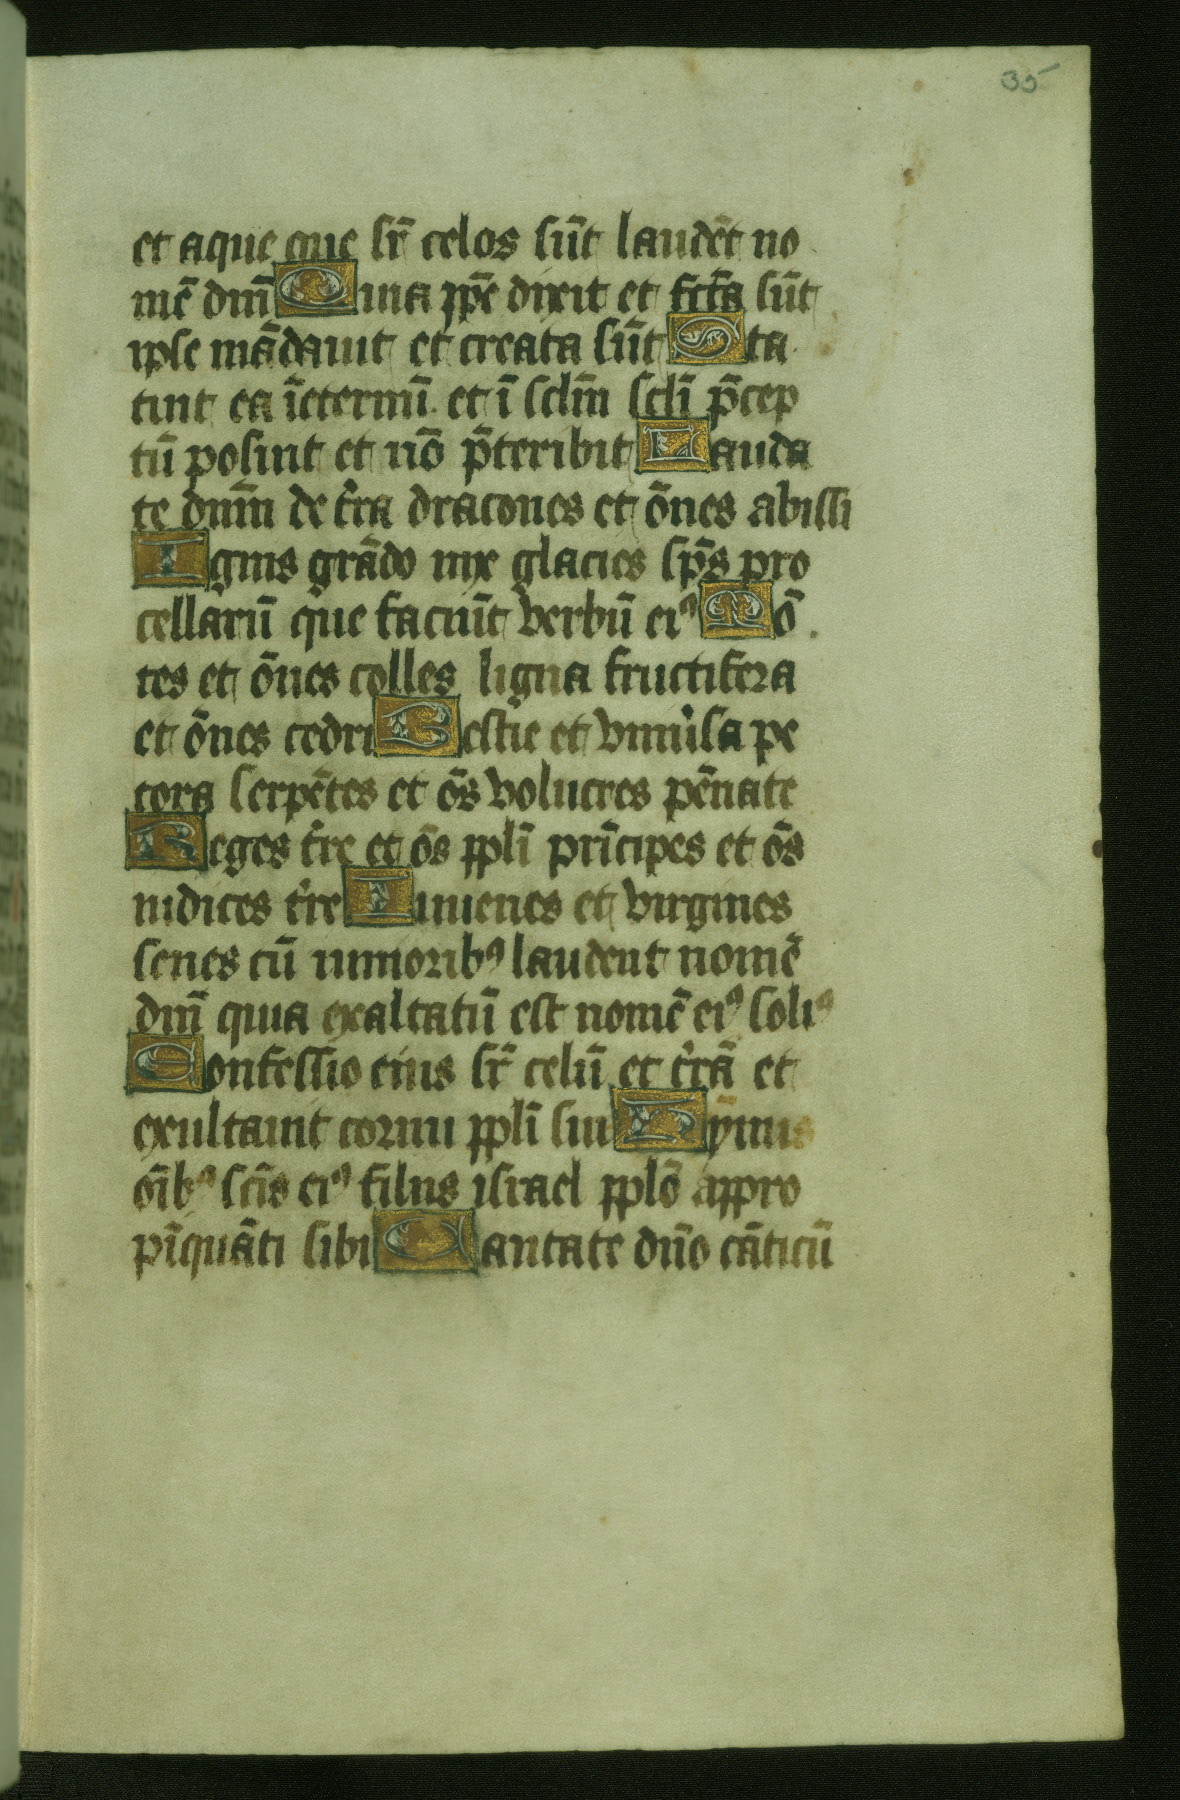 35
et aque que sr̄ celos sūt laudēt no
mē dn̄i Quia ip̄e dixit et fc̄a sūt
ipse mādauit et creata sūt Sta
tuit ea ī eternū. et ī sclm̄ scl̄i p̄cep
tū posuit et nō p̄teribit Lauda
te dn̄m de tr̄a dracones et ōnes abissi
Ignis grādo nix glacies sp̄s pro
cellarū que faciūt verbū eiꝰ Mō
tes et ōnes colles ligna fructifera
et ōnes cedri Bestie et vniu̾sa pe
cora serpētes et ōs volucres pēnate
Reges tr̄e et ōs ppl̄i prīcipes et ōs
iudices tr̄e Iuuenes et virgines
senes cū iunioribꝰ laudent nomē
dn̄i quia exaltatū est nomē eiꝰ soliꝰ
Confessio eius sr̄ celū et tr̄ā et
exultauit cornu ppl̄i sui Hȳmus
oībꝰ scīs eiꝰ filiis israel pplō appro
pīquāti sibi Cantate dn̄o cāticū